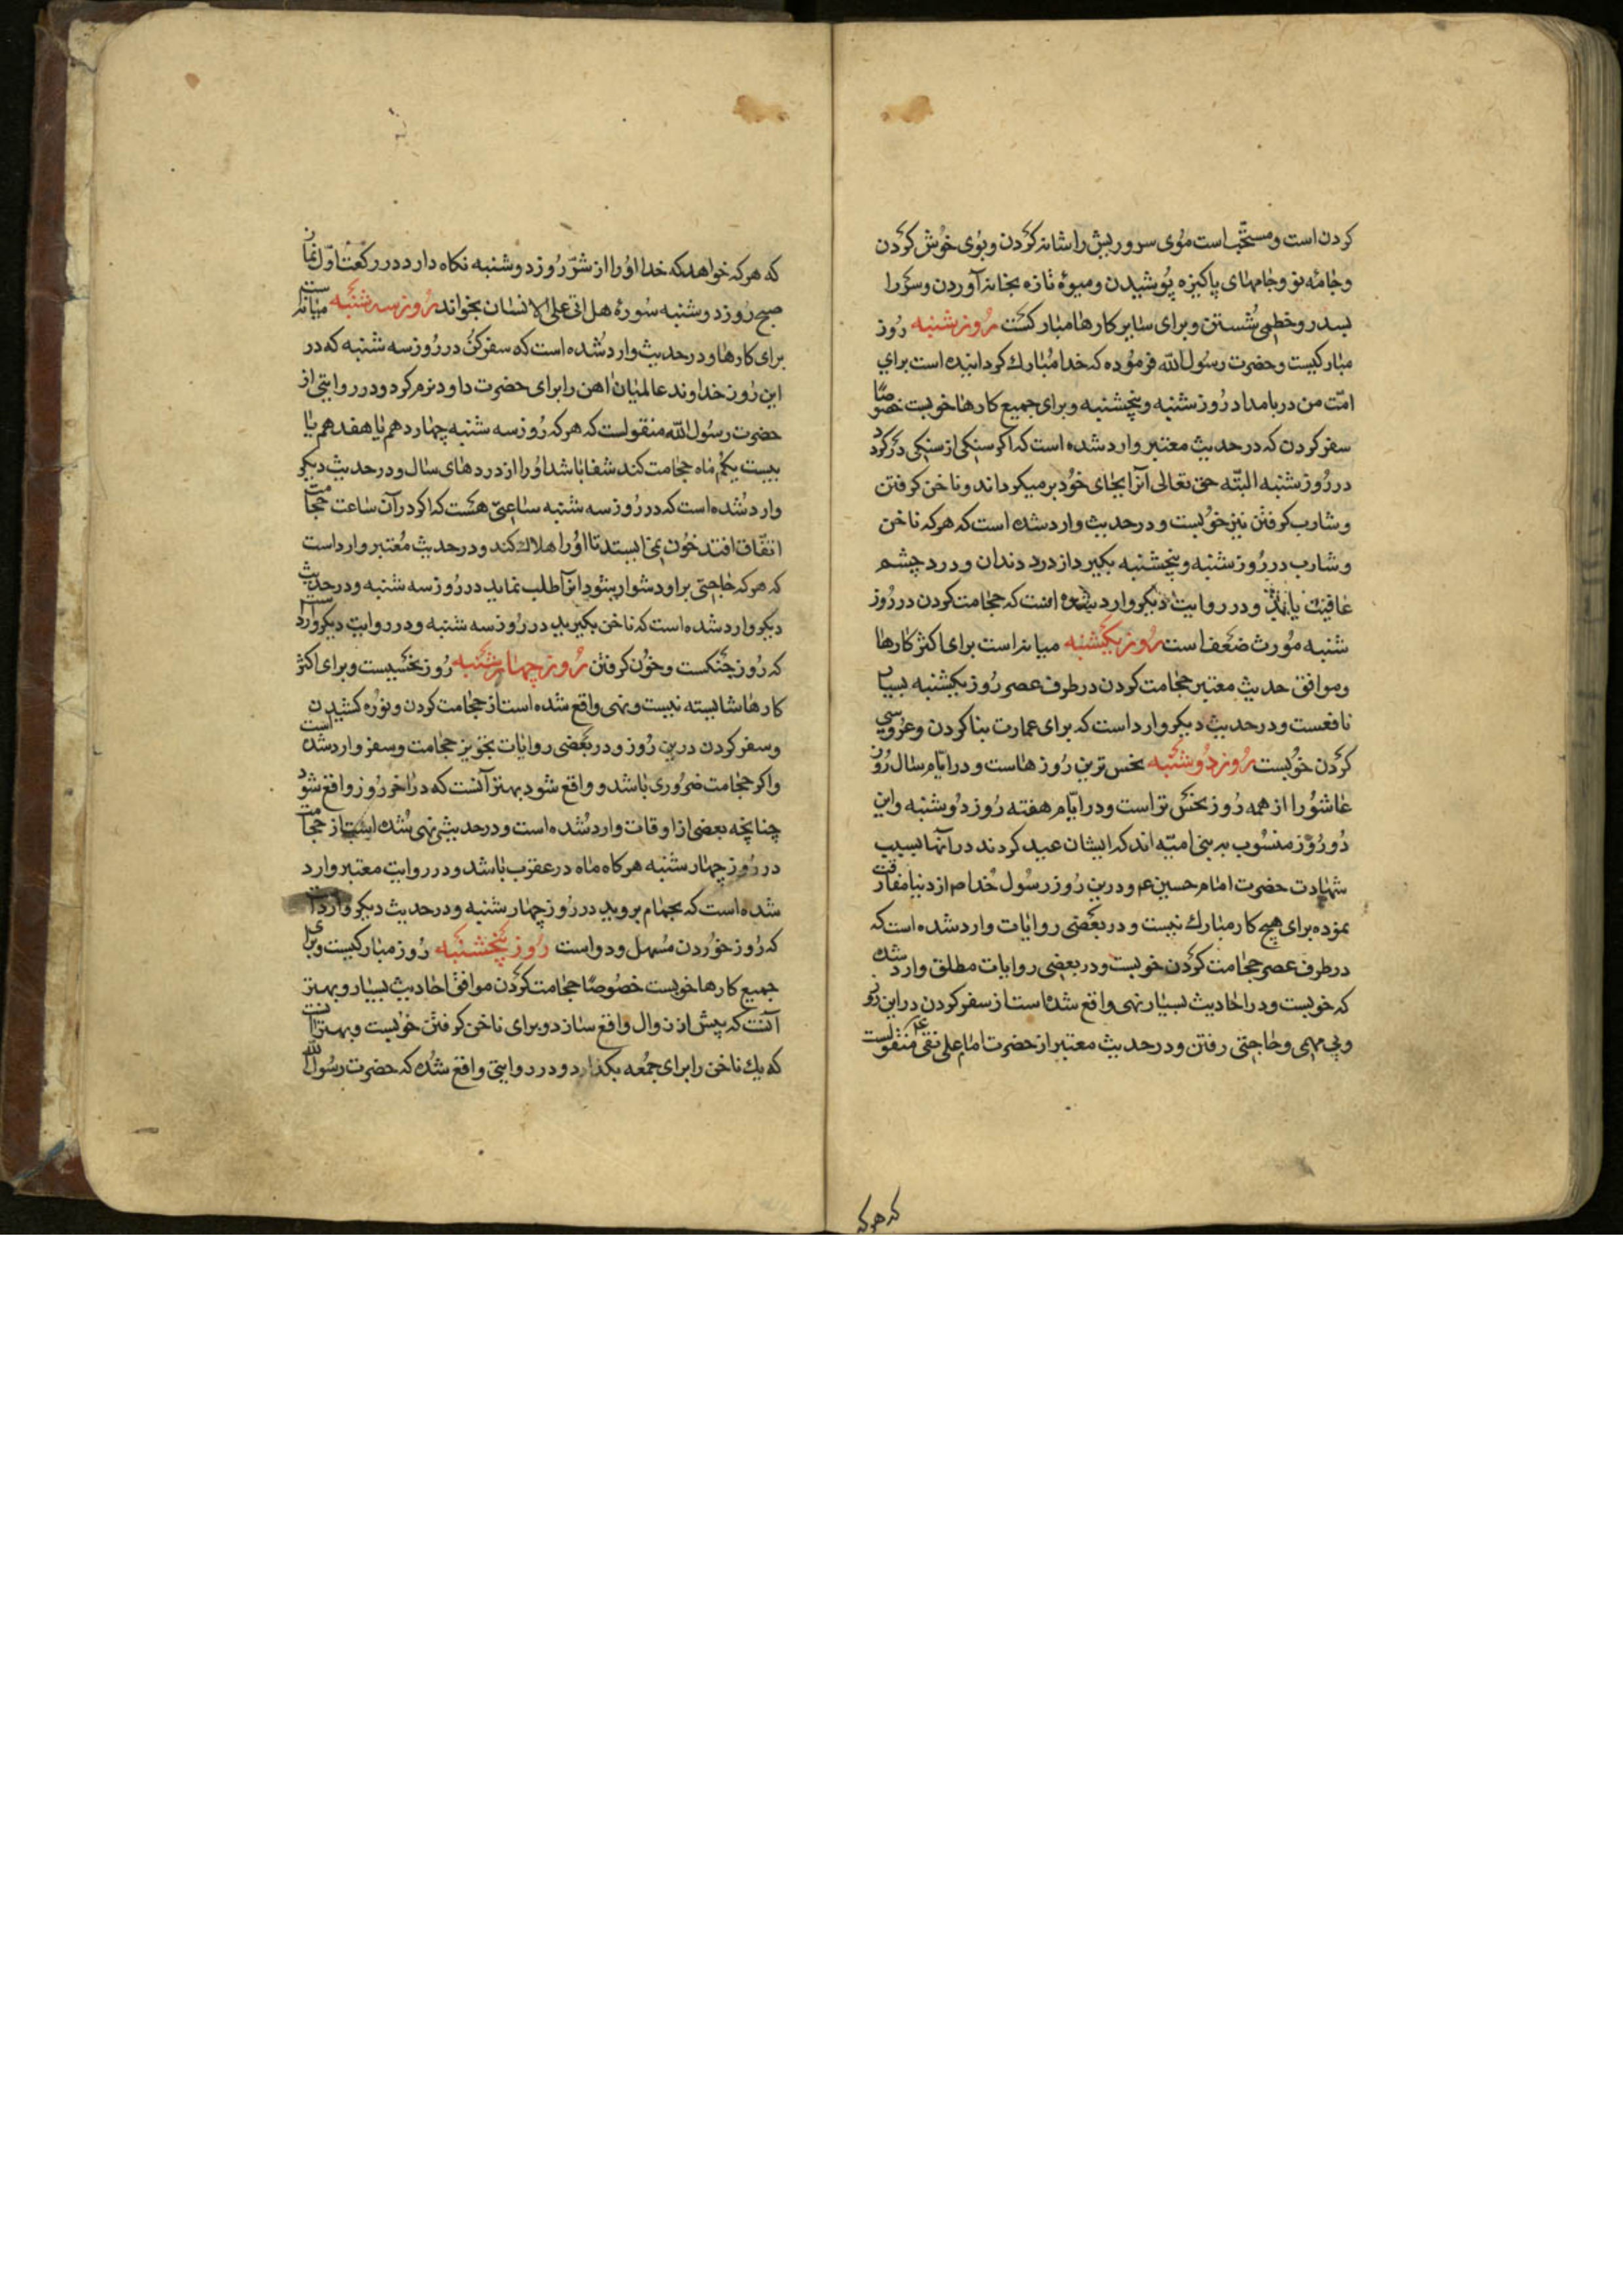 کردن است و مستحبّ است موی سر و ریش را شانه کردن و بوی خوش کردن
و جامه نو و جامهای پاکیزه پوشیدن و میوهٔ تازه بخانه آوردن و سر را
بسدر و خطمی شستن و برای سایر کارها مبارکست روز شنبه روز
مبارکیست و حضرت رسول الله فرموده که خدا مبارک کردانیده است برای
امّت من در بامداد روز شنبه و پنجشنبه و برای جمیع کارها خوبست خصوصًا
سفر کردن که در حدیث معتبر وارد شده است که اکر سنکی از سنکی در کردد
در روز شنبه البتّه حق تعالی آنرا بجای خود بر میکرداند و ناخن کرفتن
و شارب کرفتن نیز خوبست و در حدیث وارد شده است که هر که ناخن
و شارب در روز شنبه و پنجشنبه بکیرد از درد دندان و درد چشم
عافیت یابد و در روایت دیکر وارد شده است که حجامت کردن در روز
شنبه مورث ضعف است روز یکشنبه میانه است برای اکثر کارها
و موافق حدیث معتبر حجامت کردن در طرف عصر روز یکشنبه بسیار
نافعست و در حدیث دیکر وارد است که برای عمارت بنا کردن و عروسی
کردن خوبست روز دوشنبه نحس ترین روزهاست و در ایّام سال روز
عاشورا از همه روز نحس تر است و در ایّام هفته روز دوشنبه و این
دو روز منسوب به بنی امیّه اند که ایشان عید کردند در آنها بسبب
شهادت حضرت امام حسین ع و درین روز رسول خدا ص از دنیا مفارقت
نموده برای هیچ کار مبارک نیست و در بعضی روایات وارد شده است که
در طرف عصر حجامت کردن خوبست و در بعضی روایات مطلق وارد شده
که خوبست و در احادیث بسیار نهی واقع شده است از سفر کردن در این روز
و پی مهمی و حاجتی رفتن و در حدیث معتبر از حضرت امام علی نقی ع منقولست
که هر که
که هر که خواهد که خدا او را از شرّ روز دوشنبه نکاه دارد در رکعت اوّل نماز
صبح روز دوشنبه سورهٔ هل اتی علی الانسان بخواند روز سه شنبه میانه است
برای کارها و در حدیث وارد شده است که سفر کن در روز سه شنبه که در
این روز خداوند عالمیان اهن را برای حضرت داود نرم کرد و در روایتی از
حضرت رسول الله منقولست که هر که روز سه شنبه چهاردهم یا هفدهم یا
بیست یکم ماه حجامت کند شفا باشد او را از دردهای سال و در حدیث دیکر
وارد شده است که در روز سه شنبه ساعتی هست که اکر در آن ساعت حجامت
اتفاق افتد خون نمی ایستد تا او را هلاک کند و در حدیث معتبر وارد است
که هر که حاجتی بر او دشوار شود انرا طلب نماید در روز سه شنبه و در حدیث
دیکر وارد شده است که ناخن بکیرید در روز سه شنبه و در روایت دیکر وارد است
که روز جنکست و خون کرفتن روز چهار شنبه روز نحسیست و برای اکثر
کارها شایسته نیست و نهی واقع شده است از حجامت کردن و نوره کشیدن
و سفر کردن درین روز و در بعضی روایات تجویز حجامت و سفر وارد شده است
و اکر حجامت ضروری باشد و واقع شود بهتر آنست که در اخر روز واقع شود
چنانچه بعضی از اوقات وارد شده است و در حدیثی نهی شده است از حجامت
در روز چهار شنبه هر کاه ماه در عقرب باشد و در روایت معتبر وارد
شده است که بحمام بروید در روز چهار شنبه و در حدیث دیکر وارد
که روز خوردن مسهل و دواست روز پنجشنبه روز مبارکیست و برای
جمیع کارها خوبست خصوصًا حجامت کردن موافق احادیث بسیار و بهتر
آنست که پیش از زوال واقع سازد و برای ناخن کرفتن خوبست و بهتر آنست
که یک ناخن را برای جمعه بکذارد و در روایتی واقع شده که حضرت رسول الله